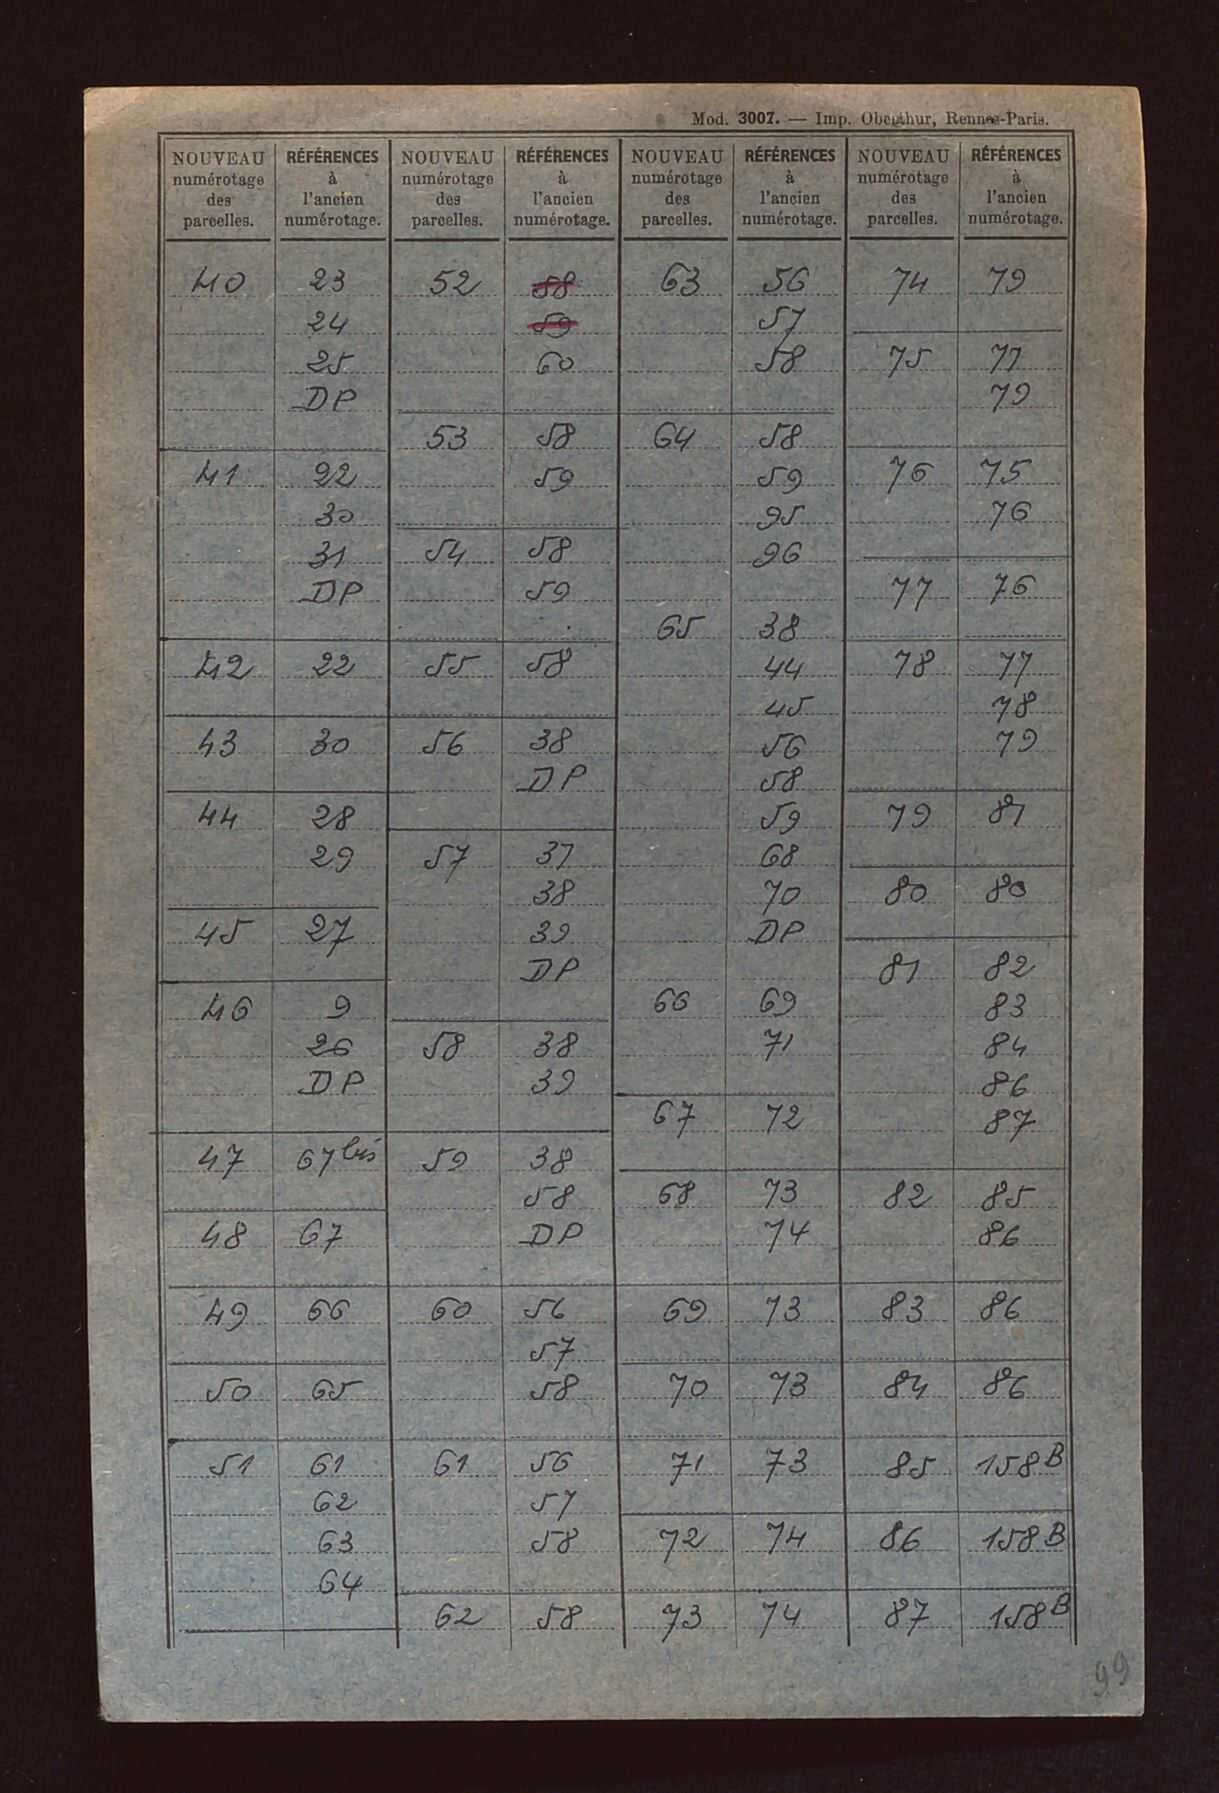 Mod. 3007. — Imp. Oberthur, Rennes-Paris.
NOUVEAU RÉFÉRENCES
numérotage à
des l'ancien
parcelles. numérotage.
40 23
24
25
DP
41 22
30
31
DP
42 22
43 30
44 28
29
45 27
46 9
26
DP
47 67 bis
48 67
49 66
50 65
51 61
62
63
64
NOUVEAU RÉFÉRENCES
numérotage à
des l'ancien
parcelles. numérotage.
52 58
59
60
53 58
59
54 58
59
55 58
56 38
DP
57 37
38
39
DP
58 38
39
59 38
58
DP
60 56
57
58
61 56
57
58
62 58
NOUVEAU RÉFÉRENCES
numérotage à
des l'ancien
parcelles. numérotage.
63 56
57
58
64 58
59
95
96
65 38
44
45
56
58
59
68
70
DP
66 69
71
67 72
68 73
74
69 73
70 73
71 73
72 74
73 74
NOUVEAU RÉFÉRENCES
numérotage à
des l'ancien
parcelles. numérotage.
74 79
75 77
79
76 75
76
77 76
78 77
78
79
79 81
80 80
81 82
83
84
86
87
82 85
86
83 86
84 86
85 158 B
86 158 B
87 158 B
99